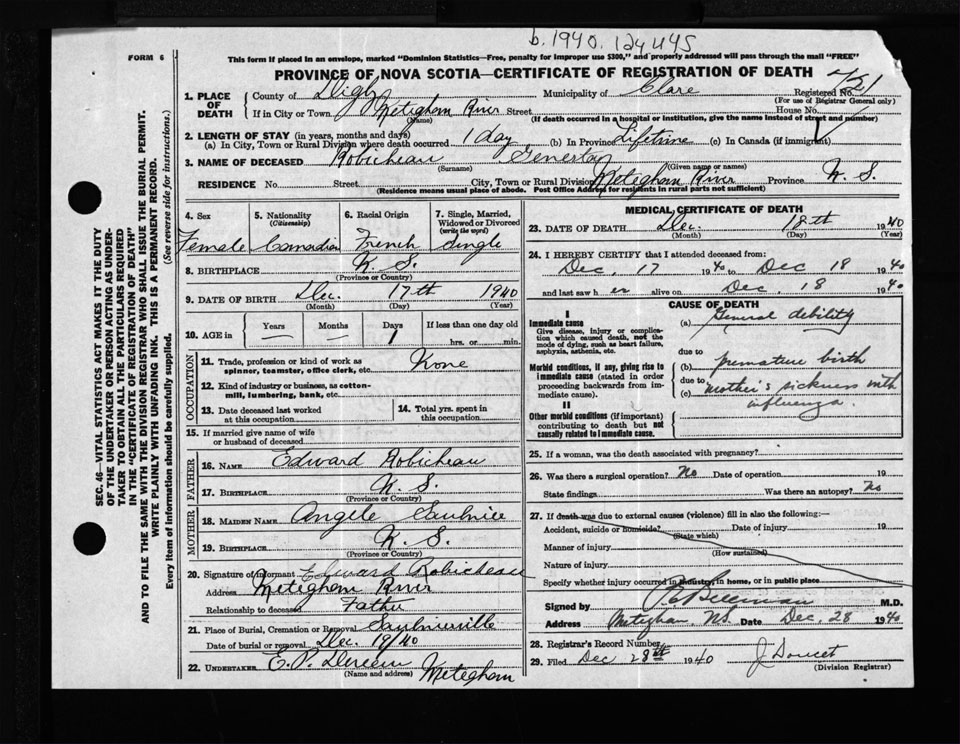 b. 1940. 124445
FORM 6
This form if placed in an envelope, marked "Dominion Statistics—Free, penalty for improper use $300," and properly addressed will pass through the mail "FREE"
PROVINCE OF NOVA SCOTIA—CERTIFICATE OF REGISTRATION OF DEATH
1. PLACE OF DEATH
County of Digby Municipality of Clare Registered No.
(For use of Registrar General only)
If in City or Town Meteghan River Street House No.
(Name) (If death occurred in a hospital or institution, give the name instead of street and number)
2. LENGTH OF STAY (in years, months and days)
(a) In City, Town or Rural Division where death occurred 1 day (b) In Province Lifetime (c) In Canada (if immigrant)
3. NAME OF DECEASED Robicheau
(Surname) (Given name or names)
RESIDENCE No. Street City, Town or Rural Division Meteghan River Province N. S.
(Residence means usual place of abode. Post Office Address for residents in rural parts not sufficient)
4. Sex Female
5. Nationality (Citizenship) Canadian
6. Racial Origin French
7. Single, Married, Widowed or Divorced (write the word) Single
8. BIRTHPLACE N. S.
(Province or Country)
9. DATE OF BIRTH Dec. 17th 1940
(Month) (Day) (Year)
10. AGE in Years — Months — Days 1 If less than one day old
hrs. or min.
OCCUPATION
11. Trade, profession or kind of work as spinner, teamster, office clerk, etc. None
12. Kind of industry or business, as cotton-mill, lumbering, bank, etc.
13. Date deceased last worked at this occupation
14. Total yrs. spent in this occupation
15. If married give name of wife or husband of deceased
FATHER
16. NAME Edward Robicheau
17. BIRTHPLACE N. S.
(Province or Country)
MOTHER
18. MAIDEN NAME Angele Saulnier
19. BIRTHPLACE N. S.
(Province or Country)
20. Signature of informant Edward Robicheau
Address Meteghan River
Relationship to deceased Father
21. Place of Burial, Cremation or Removal Saulnierville
Date of burial or removal Dec. 19/40
22. UNDERTAKER E. P. Meteghan
(Name and address)
MEDICAL CERTIFICATE OF DEATH
23. DATE OF DEATH Dec. 18th 1940
(Month) (Day) (Year)
24. I HEREBY CERTIFY that I attended deceased from:
Dec. 17 1940 to Dec 18 1940
and last saw h er alive on Dec. 18 1940
CAUSE OF DEATH
I
Immediate cause
Give disease, injury or complication which caused death, not the mode of dying, such as heart failure, asphyxia, asthenia, etc.
(a) General debility
Morbid conditions, if any, giving rise to immediate cause (stated in order proceeding backwards from immediate cause).
due to
(b) premature birth
due to
(c) mother's sickness with influenza.
II
Other morbid conditions (if important) contributing to death but not causally related to immediate cause.
25. If a woman, was the death associated with pregnancy?
26. Was there a surgical operation? No Date of operation 19
State findings Was there an autopsy? No
27. If death was due to external causes (violence) fill in also the following:—
Accident, suicide or homicide? Date of injury 19
(State which)
Manner of injury
(How sustained)
Nature of injury
Specify whether injury occurred in industry, in home, or in public place
Signed by M.D.
Address Meteghan, NS. Date Dec. 28 1940
28. Registrar's Record Number
29. Filed Dec 28th 1940 J Doucet
(Division Registrar)
SEC. 46—VITAL STATISTICS ACT MAKES IT THE DUTY
OF THE UNDERTAKER OR PERSON ACTING AS UNDER-
TAKER TO OBTAIN ALL THE PARTICULARS REQUIRED
IN THE "CERTIFICATE OF REGISTRATION OF DEATH"
AND TO FILE THE SAME WITH THE DIVISION REGISTRAR WHO SHALL ISSUE THE BURIAL PERMIT.
WRITE PLAINLY WITH UNFADING INK. THIS IS A PERMANENT RECORD.
Every item of information should be carefully supplied. (See reverse side for instructions.)